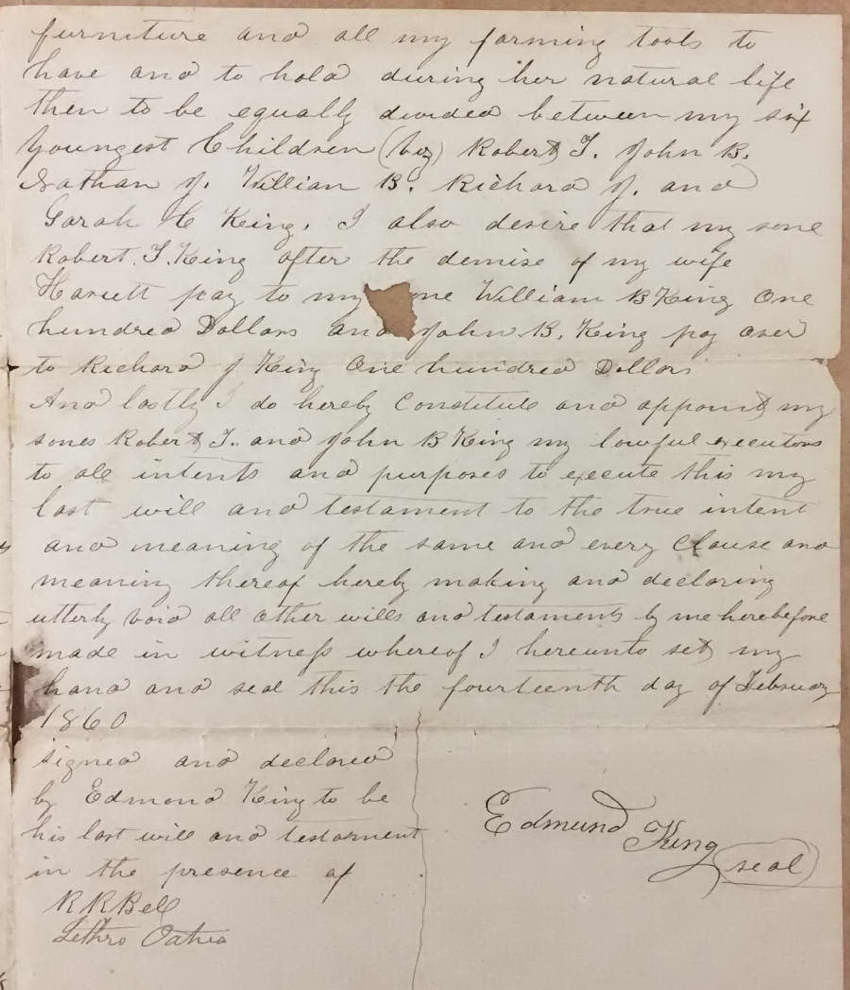 furniture and all my farming tools to
have and to hold during her natural life
then to be equally divided between my six
youngest Children (viz) Robert T. John B.
Nathan J. William B. Richard J. and
Sarah C King. I also desire that my sone
Robert. T. King after the demise of my wife
Hariett pay to my one William B King One
hundred Dollars and John B. King pay over
to Richard J King One hundred Dollars
And lastly I do hereby Constitute and appoint my
sones Robert T. and John B King my lawful executors
to all intents and purposes to execute this my
last will and testament to the true intent
and meaning of the same and every Clause and
meaning thereof hereby making and declaring
utterly void all other wills and testaments by me herebefore
made in witness whereof I hereunto set my
hand and seal this the fourteenth day of February
1860
signed and declared
by Edmond King to be
his last will and testament
in the presence of
R R Bell
Edmund King
seal